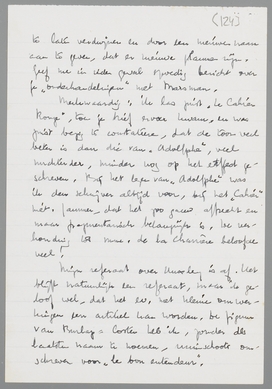 (124)
te laten verdwijnen en door een nieuwen naam
aan te geven, dat er nieuwe plannen zijn.
Geef me in ieder geval spoedig bericht over
je "onderhandelingen" met Marsman.
Merkwaardig: ik las juist "Le Cahier
Rouge", toen je brief ervoor kwam, en was
juist bezig te constateeren, dat de toon veel
beter is dan die van "Adolphe", veel
minder nog op het effect ge-
schreven. Bij het lezen van "Adolphe" was
ik den schrijver altijd voor, bij het "Cahier"
niet. Jammer, dat het zoo gauw afbreekt en
maar fragmentarisch belangrijk is. De ver-
houding tot mme. de Charrière beloofde
veel!
Mijn referaat over Huxley is af. Het
blijft natuurlijk een referaat, maar ik ge-
loof wel, dat het er, met kleine omwer-
kingen een artikel kan worden. De figuur
van heb ik, zonder die
naam te noemen, omschre-
schreven voor "le bon entendeur".